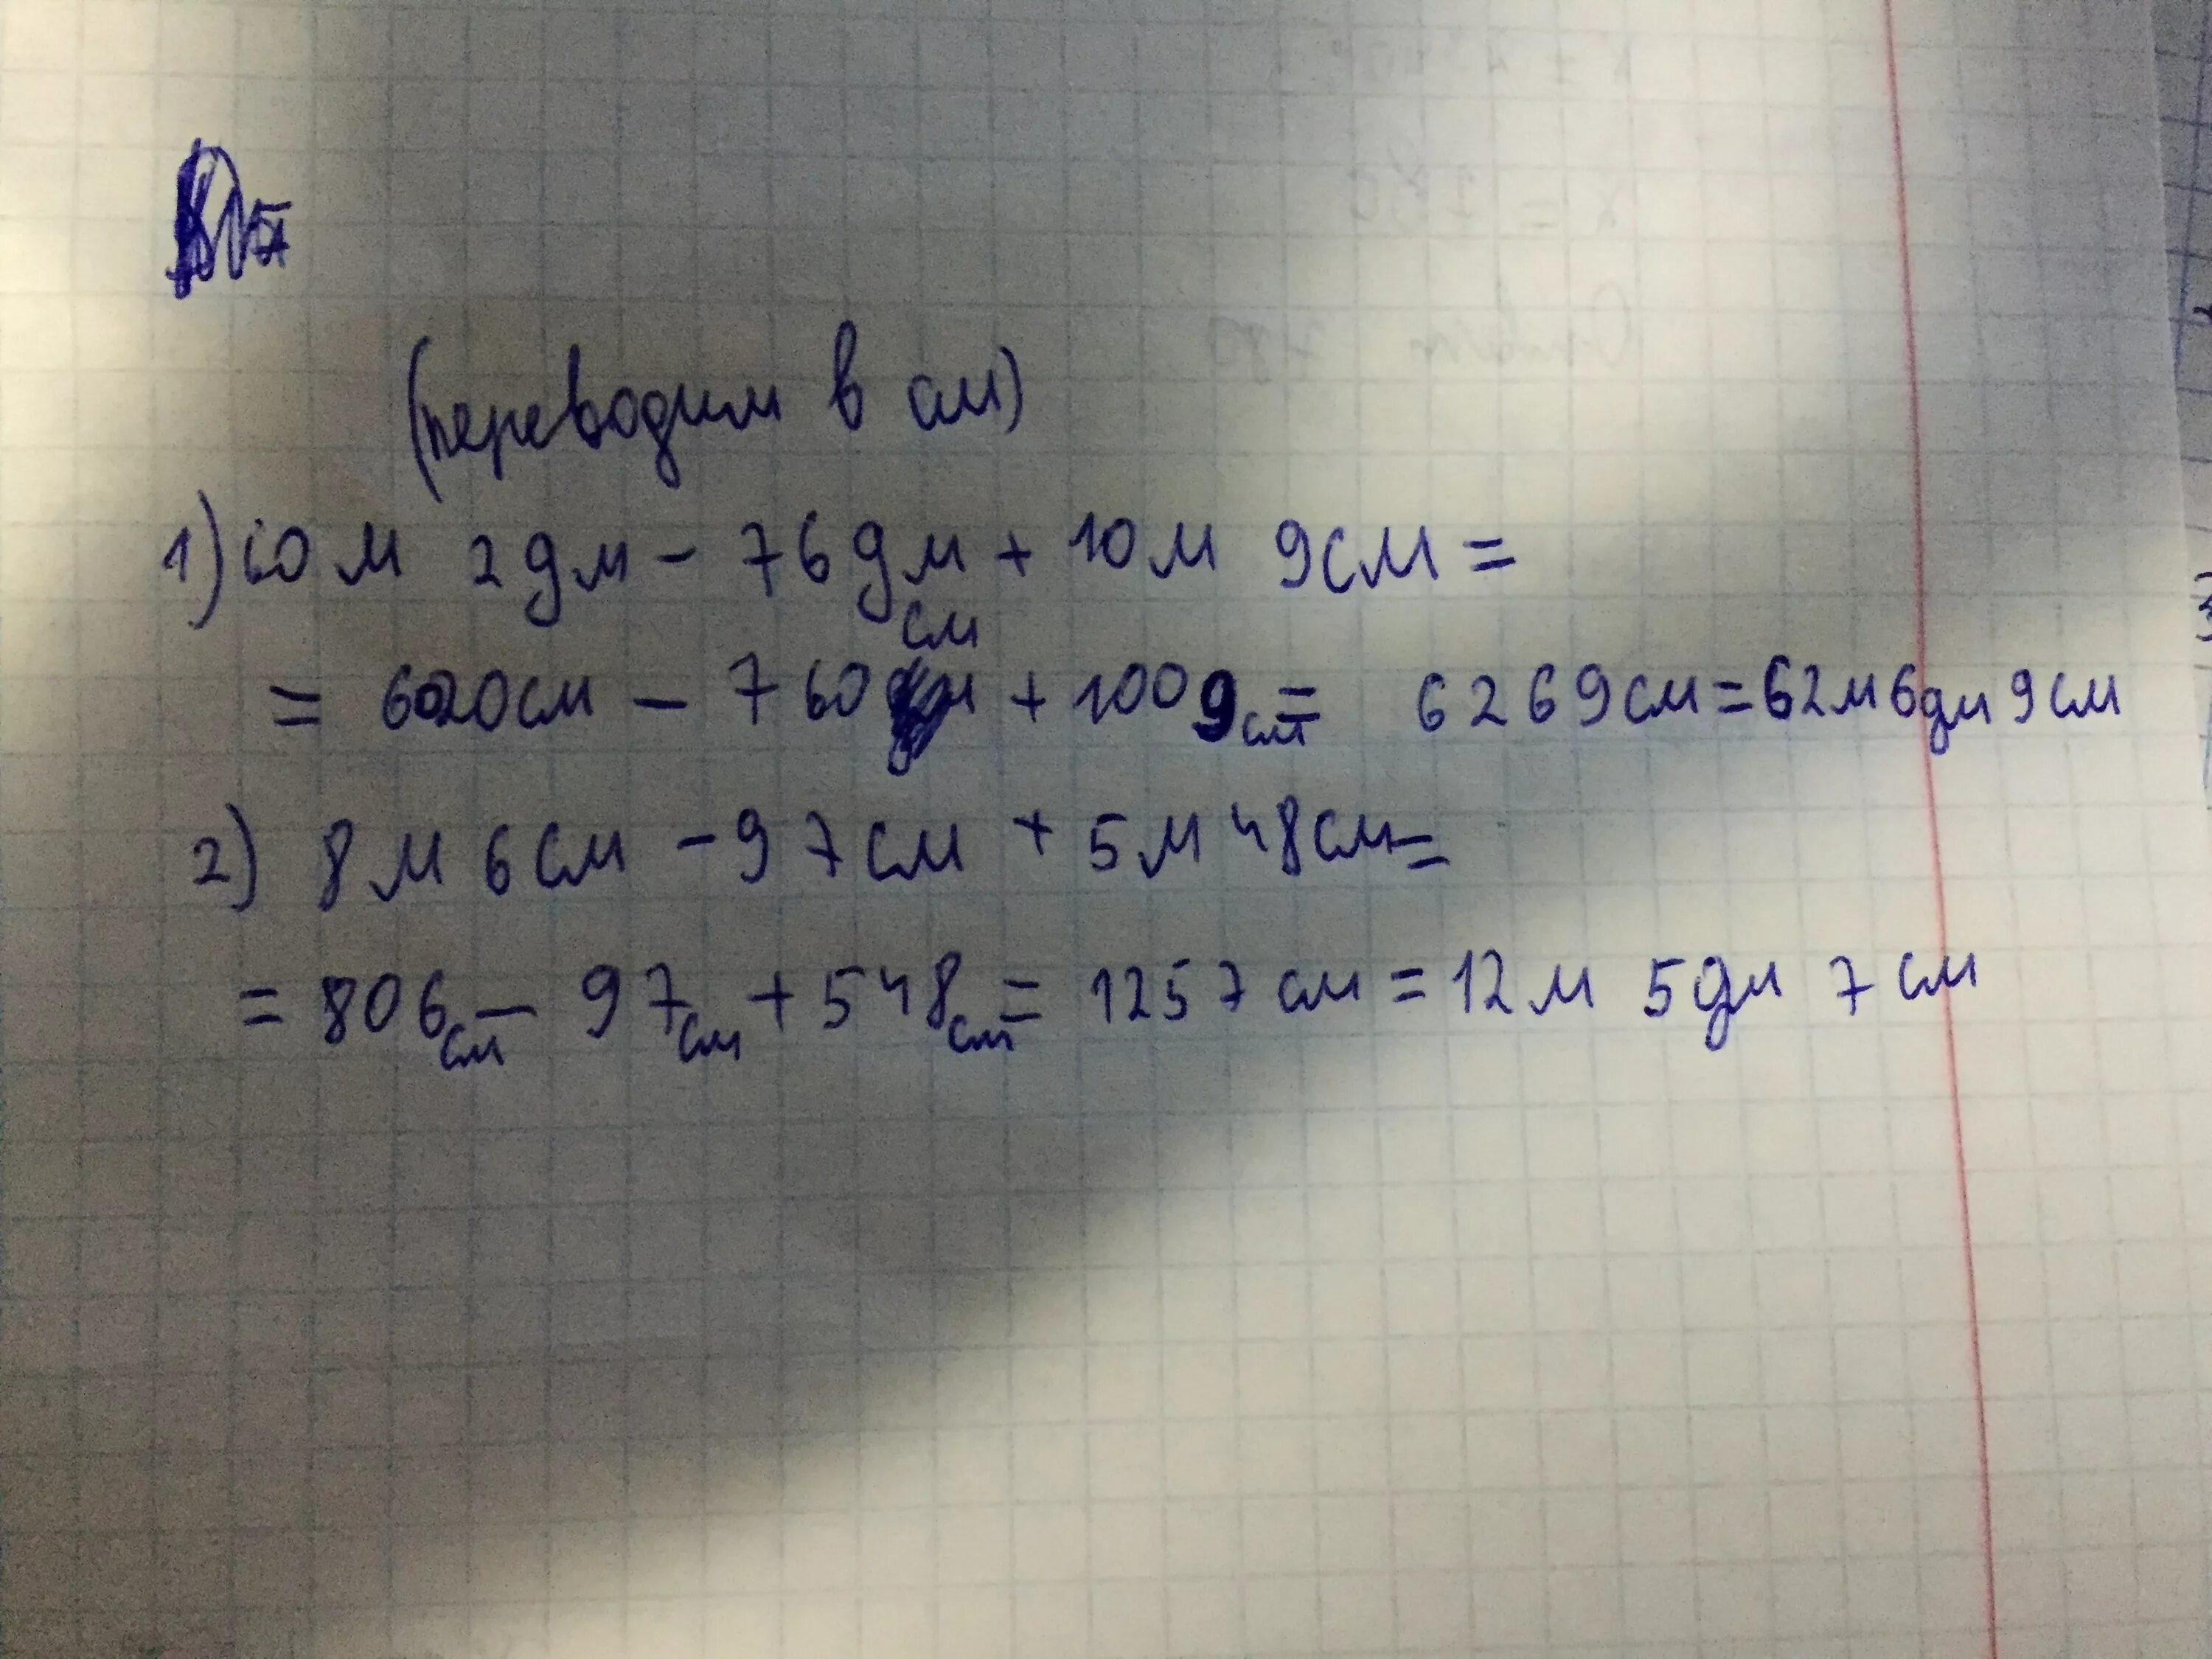 (переводим в см)
1) 60 м 2 дм - 76 дм + 10 м 9 см =
= 6020 см - 760 см + 1009 см = 6269 см = 62 м 6 дм 9 см
2) 8 м 6 см - 97 см + 5 м 48 см =
= 806 см - 97 см + 548 см = 1257 см = 12 м 5 дм 7 см